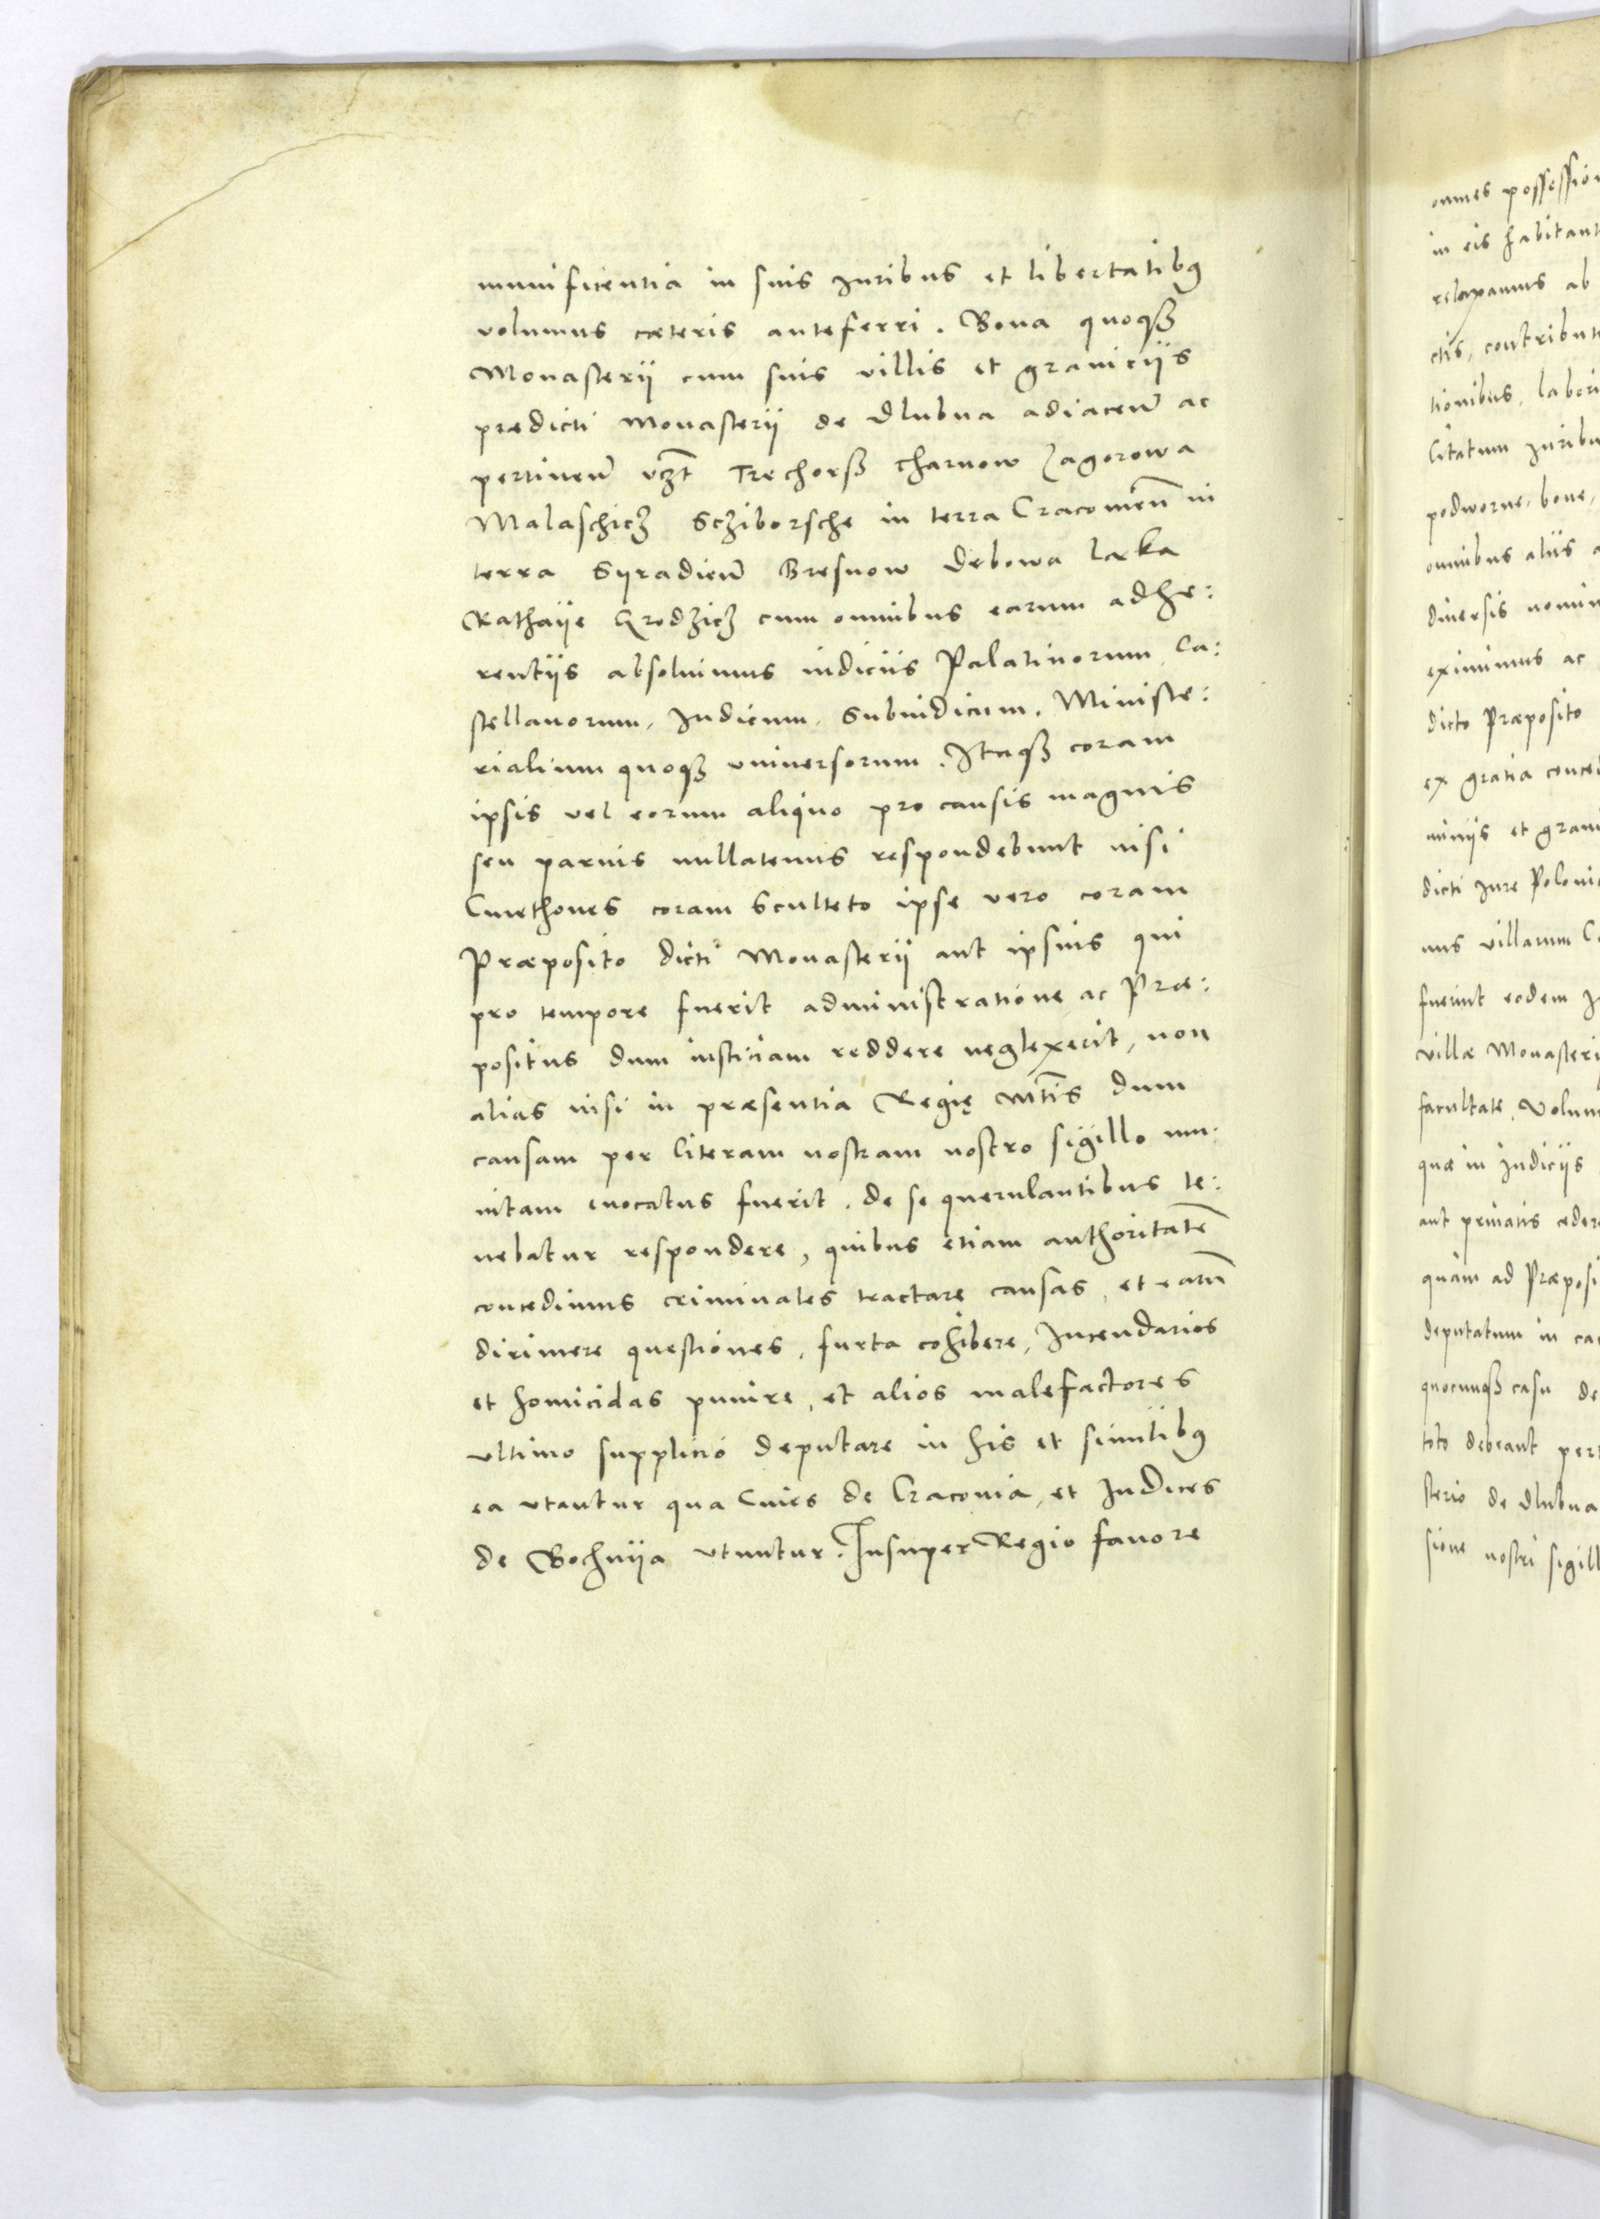 munificentia in suis Juribus et libertatibꝰ
volumus cæteris anteferri. Bona quoqꝫ
Monasterii cum suis villis et graniciis
prædicti Monasterii de Dlubna adiaceñ ac
pertineñ vꝫt Trechorß Charnow Zagorowa
Malaschicz Scziborsche in terra Cracovieñ in
terra Syradieñ Bresnow Debowa læka
Rathaije Grodzicz cum omnibus earum adhe:
rentiis absoluimus iudiciis Palatinorum, Ca:
stellanorum, Judicum, Subiudicum, Ministe:
rialium quoqꝫ universorum. Itaqꝫ coram
ipsis vel eorum aliquo pro causis magnis
seu parvis nullatenus respondebunt nisi
Cmethones coram Sculteto ipse vero coram
Præposito dicti Monasterii aut ipsius qui
pro tempore fuerit administratione ac Præ:
positus dum iusticiam reddere neglexerit, non
alias nisi in præsentia Regię Mtis dum
causam per literam nostram nostro sigillo mu:
nitam evocatus fuerit, de se querulantibus te:
nebatur respondere, quibus etiam authoritatē
concedimus criminales tractare causas, et earū
dirimere questiones, furta cohibere, Incendarios
et homicidas punire, et alios malefactores
ultimo supplicio deputare in his et similibꝰ
ea utantur qua Cives de Cracovia, et Judices
de Bochnija utuntur. Insuper Regio favore
omnes possession
in eis habitant
relaxamus ab
ctis, contributi
tionibus, labori
litatum Juribu
podworne, bove,
omnibus aliis a
diversis nomin
eximimus ac
dicto Præposito
ex gratia conced
miniis et grani
dicti Jure Poloni
mus villarum C
fuerint eodem J
villæ Monasteri
facultate, Volum
quæ in Judiciis
aut privatis ceder
quàm ad Præposi
deputatum in ca
quocunqꝫ casu de
toto debeant pert
sterio de Dlubna
sione nostri sigill